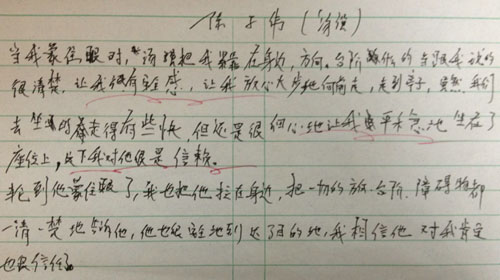 陈子伟（
当我蒙住眼时，把我紧靠在身近，方向、台阶什么的台跟我说的
很清楚，让我很有安全感，让我放心大步地向前走，走到亭子，虽然我们
去坐的时走得有些快，但还是很细心地让我平稳地坐在了
座位上，这下我对他很是信赖。
轮到他蒙住眼了，我也把他拉在身近，把一切的台阶、障碍物都
一清一楚地告诉他，他也安全地到达了目的地，我相信他对我肯定
也很信任